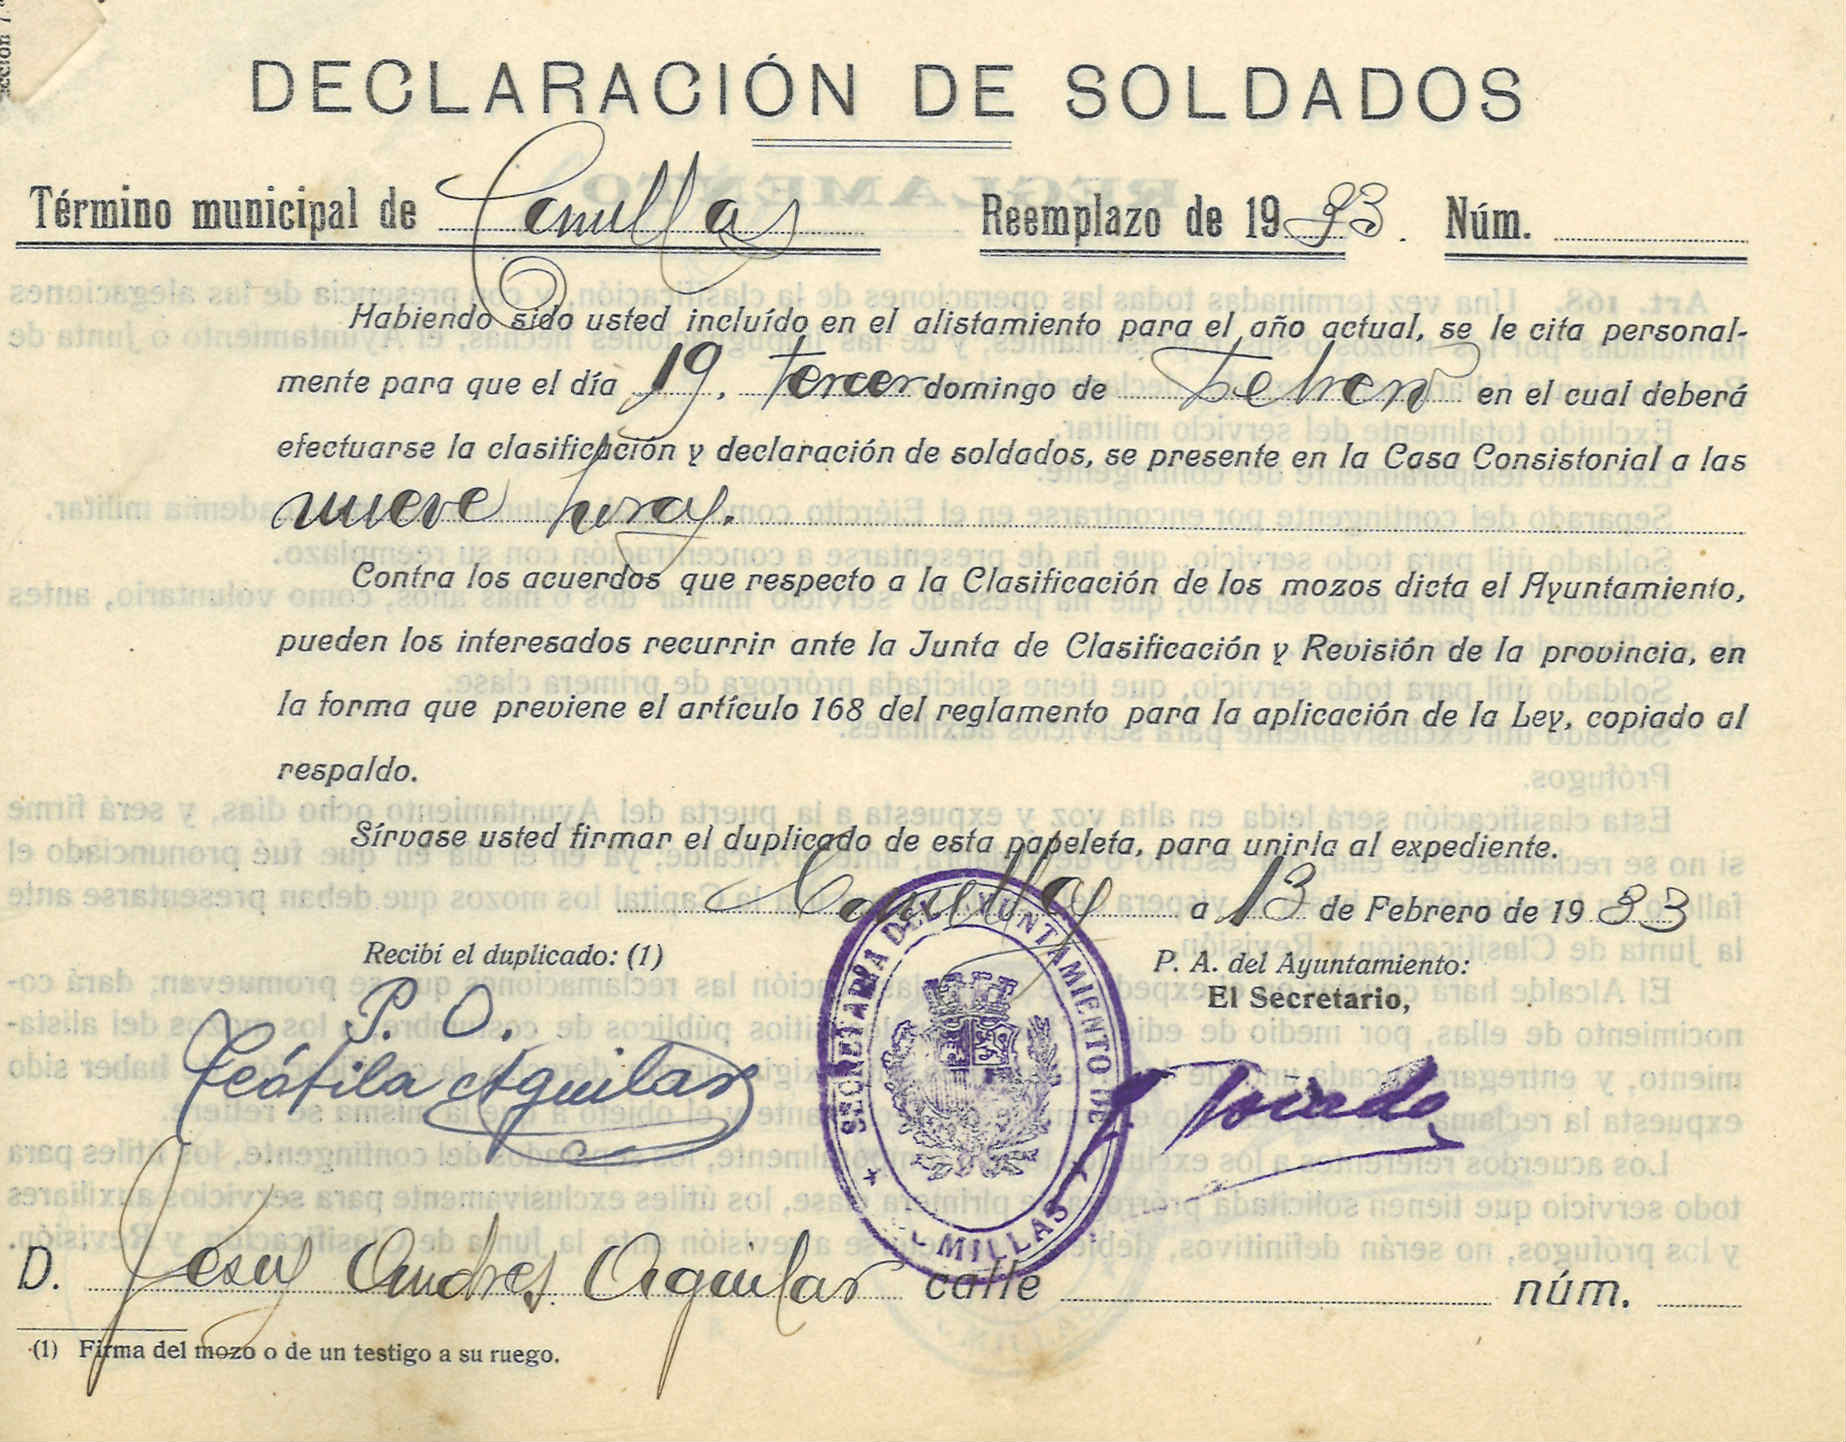 DECLARACIÓN DE SOLDADOS
Término municipal de Reemplazo de 1933. Núm.
Habiendo sido usted incluído en el alistamiento para el año actual, se le cita personal-
mente para que el día 19, tercer domingo de Febrero en el cual deberá
efectuarse la clasificación y declaración de soldados, se presente en la Casa Consistorial a las
nueve horas.
Contra los acuerdos que respecto a la Clasificación de los mozos dicta el Ayuntamiento,
pueden los interesados recurrir ante la Junta de Clasificación y Revisión de la provincia, en
la forma que previene el artículo 168 del reglamento para la aplicación de la Ley, copiado al
respaldo.
Sírvase usted firmar el duplicado de esta papeleta, para unirla al expediente.
a 13 de Febrero de 1933
Recibí el duplicado: (1)
P. A. del Ayuntamiento:
El Secretario,
P. O.
Teófila Aguilar
SECRETARIA DEL AYUNTAMIENTO DE
D. Jesus Andres Aguilar calle núm.
(1) Firma del mozo o de un testigo a su ruego.